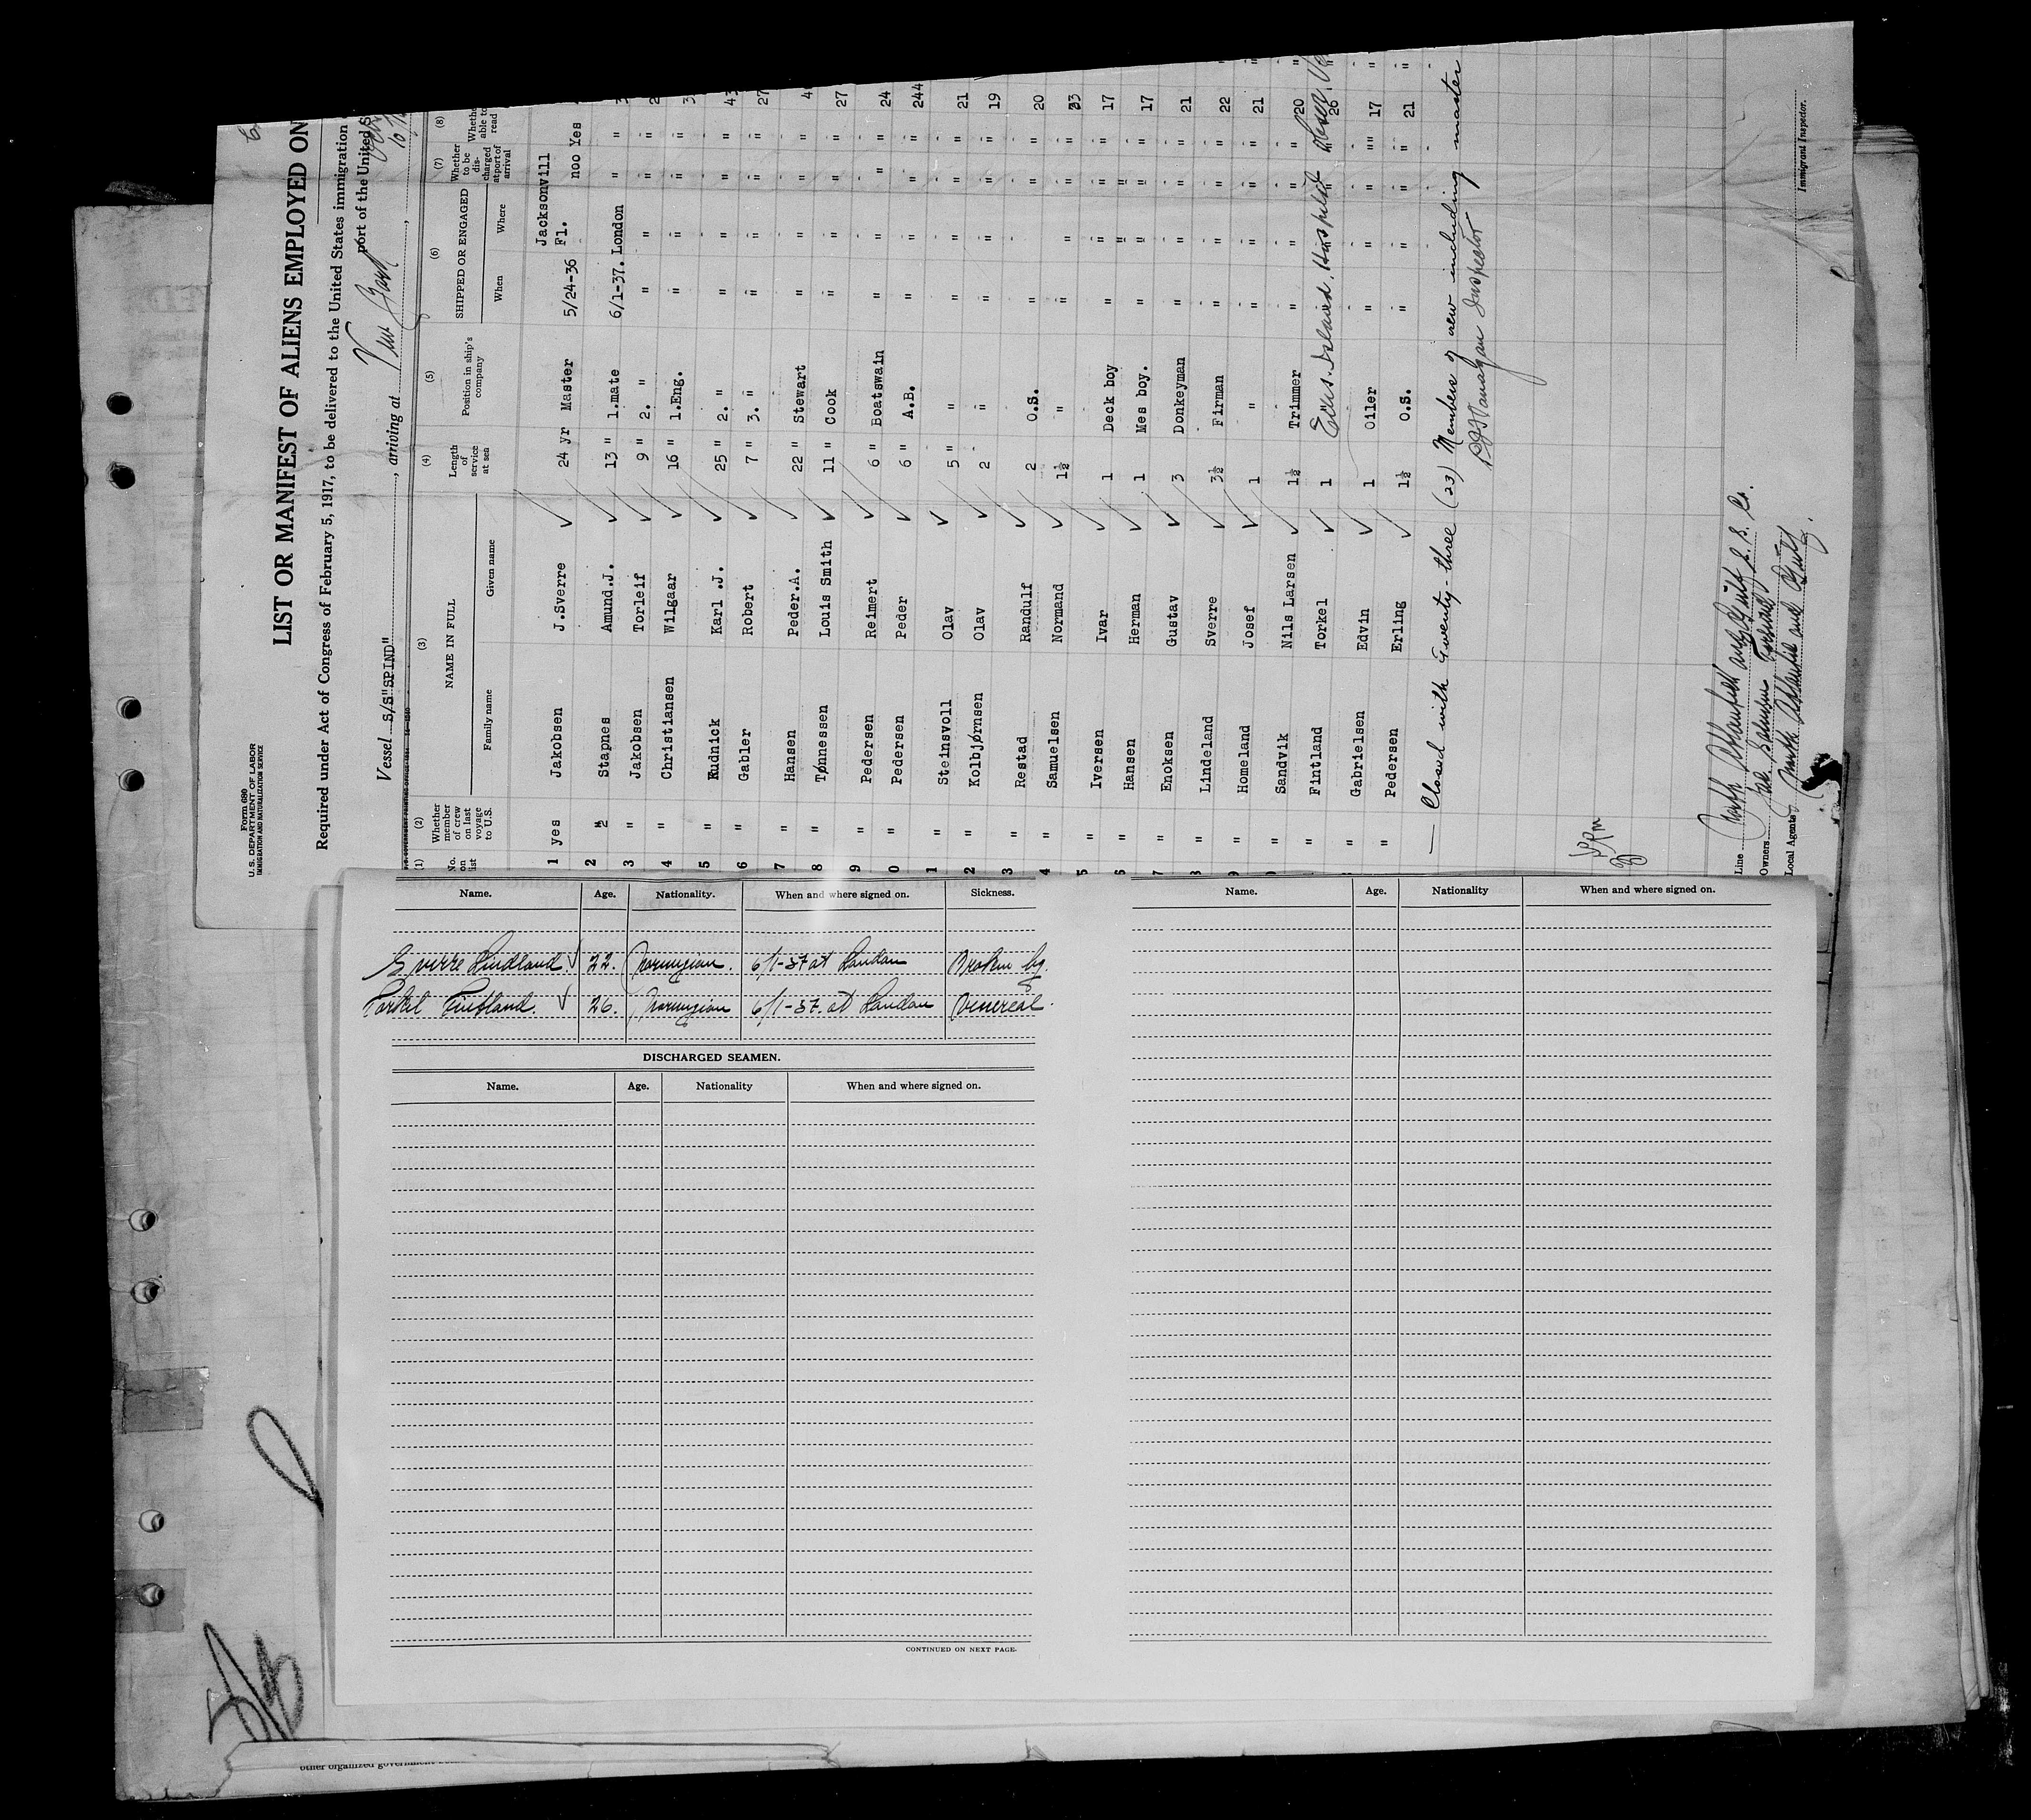 Form 680
U. S. DEPARTMENT OF LABOR
IMMIGRATION AND NATURALIZATION SERVICE
LIST OR MANIFEST OF ALIENS EMPLOYED ON
Required under Act of Congress of February 5, 1917, to be delivered to the United States immigration
port of the United S
Vessel S/S"SPIND" , arriving at New York ,
(1) (2) (3) (4) (5) (6) (7) (8)
No. on list
Whether member of crew on last voyage to U.S.
NAME IN FULL
Family name Given name
Length of service at sea
Position in ship's company
SHIPPED OR ENGAGED
When Where
Whether to be discharged at port of arrival
Whethe able to read
1 yes Jakobsen J.Sverre 24 yr Master 5/24-36 Jacksonvill Fl. noo Yes
2 " Stapnes Amund.J. 13 " 1.mate 6/1-37. London " "
3 " Jakobsen Torleif 9 " 2. " " " " "
4 " Christiansen Wilgaar 16 " 1.Eng. " " " "
5 " Rudnick Karl .J. 25 " 2. " " " " " 43
6 " Gabler Robert 7 " 3. " " " " " 27
7 " Hansen Peder.A. 22 " Stewart " " " "
8 " Tønnessen Louis Smith 11 " Cook " " " " 27
9 " Pedersen Reimert 6 " Boatswain " " " " 24
0 " Pedersen Peder 6 " A.B. " " " " 244
1 " Steinsvoll Olav 5 " " " " " " 21
2 " Kolbjørnsen Olav 2 " " " " " 19
3 " Restad Randulf 2 O.S. " " " " 20
4 " Samuelsen Normand 1½ " " " " " 23
5 " Iversen Ivar 1 Deck boy " " " " 17
6 " Hansen Herman 1 Mes boy. " " " " 17
7 " Enoksen Gustav 3 Donkeyman " " " " 21
8 " Lindeland Sverre 3½ Firman " " " " 22
9 " Homeland Josef 1 " " " " " 21
0 " Sandvik Nils Larsen 1½ Trimmer " " " " 20
Fintland Torkel 1 Ellis Island Hospital 26
" Gabrielsen Edvin 1 Oiler " " " " 17
" Pedersen Erling 1½ O.S. " " " " 21
— Closed with twenty-three (23) Members of crew including master
Inspector
Line
Owners
Local Agents
Immigrant Inspector.
Name. Age. Nationality. When and where signed on. Sickness.
Sverre Lindland. 22. Norwegian. 6/1-37 at London Broken leg.
Torkel Fintland. 26. Norwegian 6/1-37. at London Venereal.
DISCHARGED SEAMEN.
Name. Age. Nationality When and where signed on.
CONTINUED ON NEXT PAGE.
Name. Age. Nationality When and where signed on.
other organized government